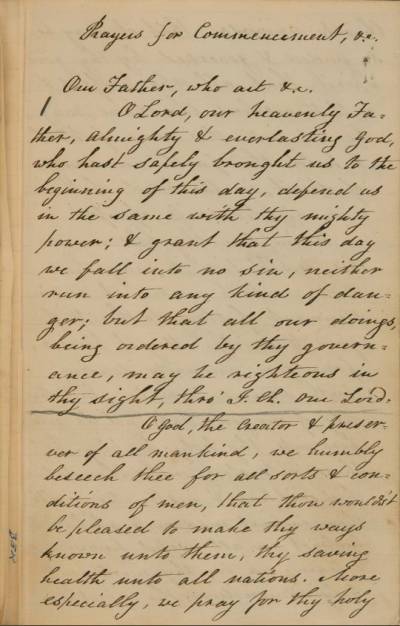 Prayers for Commencement, &c.
Our Father, who art &c.
O Lord, our heavenly Fa=
ther, almighty & everlasting God,
who hast safely brought us to the
beginning of this day, defend us
in the same with thy mighty
power; & grant that this day
we fall into no sin, neither
run into any kind of dan=
ger; but that all our doings,
being ordered by thy govern=
ance, may be righteous in
thy sight, thro' J. Ch. our Lord.
O God, the Creator & preser-
ver of all mankind, we humbly
beseech thee for all sorts & con=
ditions of men, that thou wouldst
be pleased to make thy ways
known unto them, thy saving
health unto all nations. More
especially, we pray for thy holy